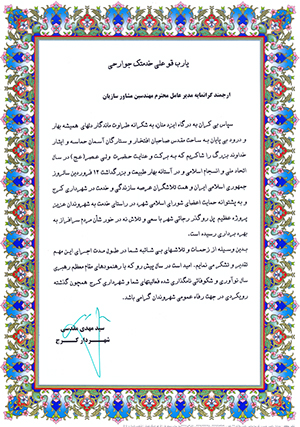 یارب قو علی خدمتک جوارحی
ارجمند گرانمایه مدیر عامل محترم مهندسین مشاور سازیان
سپاس بی کران به درگاه ایزد منان، به شکرانه طراوت ماندگار دلهای همیشه بهار
و درود بی پایان به ساحت مقدس صاحبان افتخار و ستارگان آسمان حماسه و ایثار
خداوند بزرگ را شاکریم که به برکت و عنایت حضرت ولی عصر(عج) در سال
اتحاد ملی و انسجام اسلامی و در آستانه بهار طبیعت و بزرگداشت ۱۲ فروردین سالروز
جمهوری اسلامی ایران و همت تلاشگران عرصه سازندگی و خدمت در شهرداری کرج
و به پشتوانه حمایت اعضای شورای اسلامی شهر، در راستای خدمت به شهروندان عزیز
پروژه عظیم پل روگذر رجائی شهر با سعی و تلاش نه در خور شأن مردم سرافراز به
بهره برداری رسیده است.
بدین وسیله از زحمات و تلاشهای بی شائبه شما در طول مدت اجرای این مهم
تقدیر و تشکر می نمایم. امید است در سال پیش رو که با رهنمودهای مقام معظم رهبری
سال نوآوری و شکوفائی نامگذاری شده فعالیتهای شما و شهرداری کرج همچون گذشته
رویکردی در جهت رفاه عمومی شهروندان گرامی باشد.
سید مهدی مقدسی
شهردار کرج